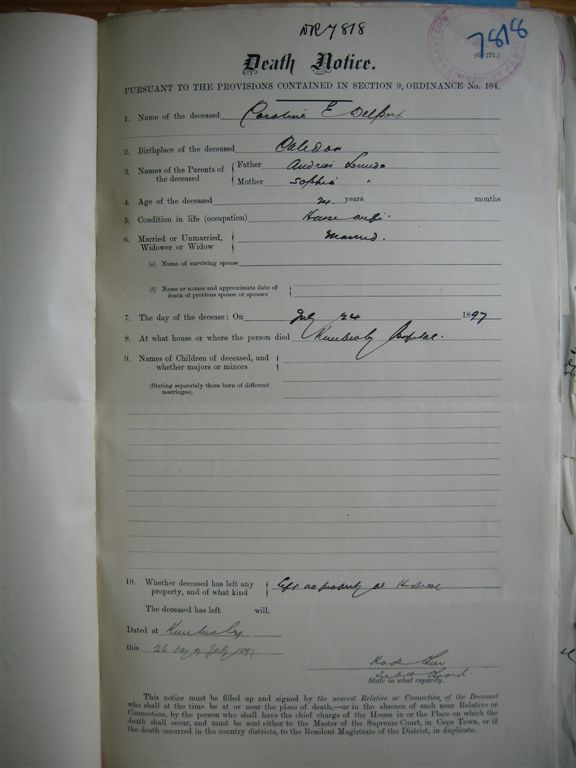 NR 7818
7818
(G. 271.)
Death Notice.
PURSUANT TO THE PROVISIONS CONTAINED IN SECTION 9, ORDINANCE No. 104.
1. Name of the deceased Caroline E Delport
2. Birthplace of the deceased Caledon
3. Names of the Parents of the deceased { Father Andries
Mother Sophia "
4. Age of the deceased years months
5. Condition in life (occupation) House
6. Married or Unmarried, Widower or Widow } Married.
(a) Name of surviving spouse
(b) Name or names and approximate date of death of previous spouse or spouses
7. The day of the decease: On July 24 1897
8. At what house or where the person died Kimberley Hospital.
9. Names of Children of deceased, and whether majors or minors
(Stating separately those born of different marriages).
10. Whether deceased has left any property, and of what kind } Left no property at
The deceased has left will.
Dated at Kimberley
this 26 day of July 1897
State in what capacity.
This notice must be filled up and signed by the nearest Relative or Connection, of the Deceased
who shall at the time be at or near the place of death,—or in the absence of such near Relative or
Connection, by the person who shall have the chief charge of the House in or the Place on which the
death shall occur, and must be sent either to the Master of the Supreme Court, in Cape Town, or if
the death occurred in the country districts, to the Resident Magistrate of the District, in duplicate.